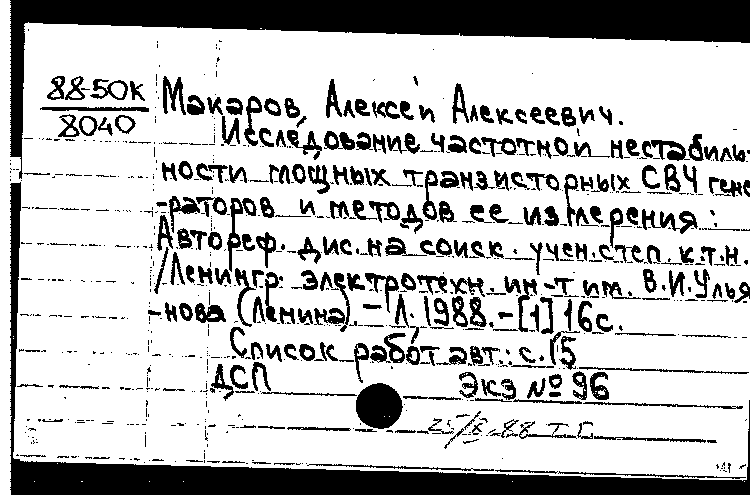 88-50К
8040
Макаров, Алексей Алексеевич.
Исследование частотной нестабиль-
ности мощных транзисторных СВЧ гене
-раторов и методов ее измерения:
Автореф. дис. на соиск. учен. степ. к.т.н.
/Ленингр. электротехн. ин-т им. В.И.Улья
-нова (Ленина). - Л. 1988. - [1] 16с.
Список работ авт.: с.15
ДСП Экз № 96